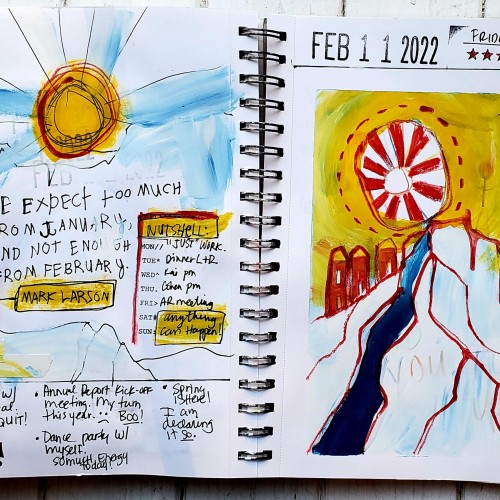 FEB 2022
E EXPECT TOO MUCH
FROM JANUARY,
ND NOT ENOUGH
FROM FEBRUARY.
MARK LARSON
NUTSHELL:
MON// "JUST" WORK.
TUE* Dinner L+R
WED^ Kai pm
THU. Cohen pm
FRI> AR meeting
SAT# anything
SUN: can Happen!
w/
al
quit!
• Annual Report Kick-off
meeting. My turn
this year. BOO!
• Dance party w/
myself.
so much Energy
today!
• Spring
is Here!
I am
declaring
it so.
FEB 1 1 2022
FRID
★★★
NOU